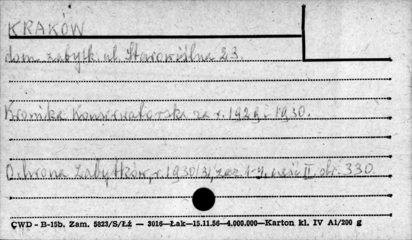 KRAKÓW
dom zabytk. ul. Starowiślna 23.
Kronika Konserwatorska za r. 1929 i 1930.
Ochrona Zabytków, r. 1930/31, zesz. 1-4, część II, str. 330.
ĆWD - B-15b. Zam. 5823/S/ŁŻ — 3016—Łak—15.11.56—4.000.000—Karton kl. IV A1/200 g